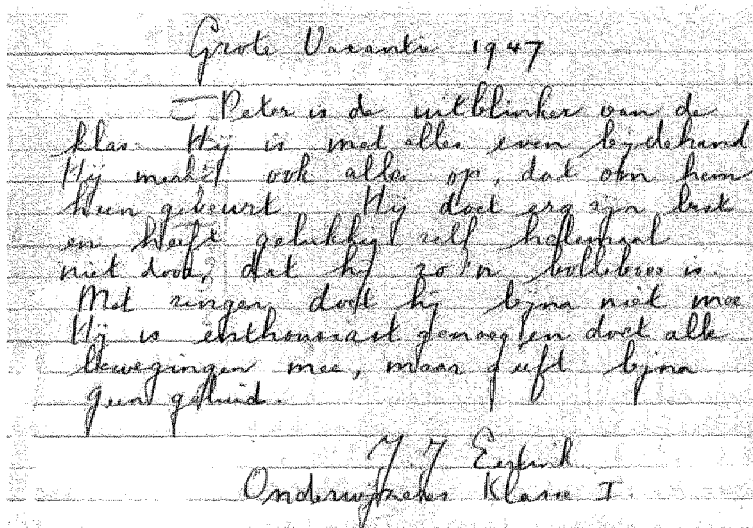 Grote Vacantie 1947
Peter is de uitblinker van de
klas. Hij is met alles even bijdehand
Hij merkt ook alles op, dat om hem
heen gebeurt. Hij doet erg zijn best
en heeft gelukkig zelf helemaal
niet door, dat hij zo'n bolleboos is.
Met zingen doet hij bijna niet mee
Hij is enthousiast genoeg en doet alle
bewegingen mee, maar geeft bijna
geen geluid.
Onderwijzeres Klasse I.